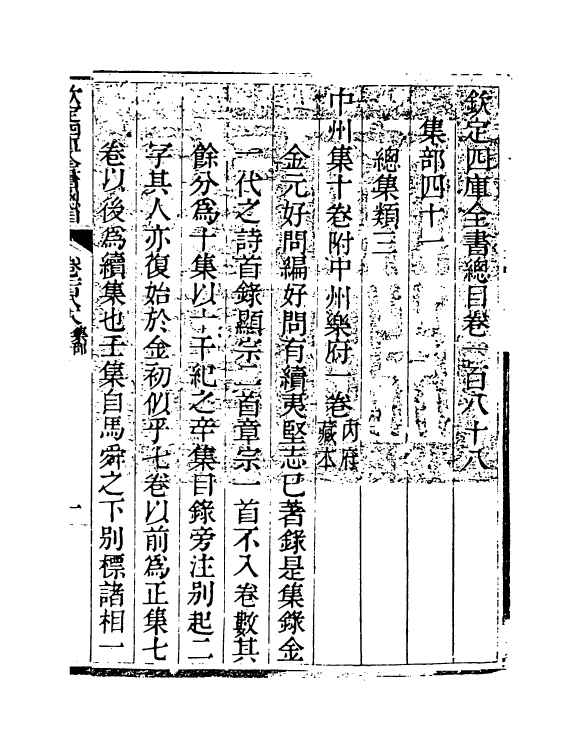 欽定四庫全書總目卷一百八十八
集部四十一
總集類三
中州集十卷附中州樂府一卷內府藏本
金元好問編好問有續夷堅志已著錄是集錄金
一代之詩首錄顯宗二首章宗一首不入卷數其
餘分爲十集以十干紀之辛集目錄旁注別起二
字其人亦復始於金初似乎七卷以前爲正集七
卷以後爲續集也壬集自馬舜之下別標諸相一
欽定四庫全書總目 卷一百八十八 集部 一